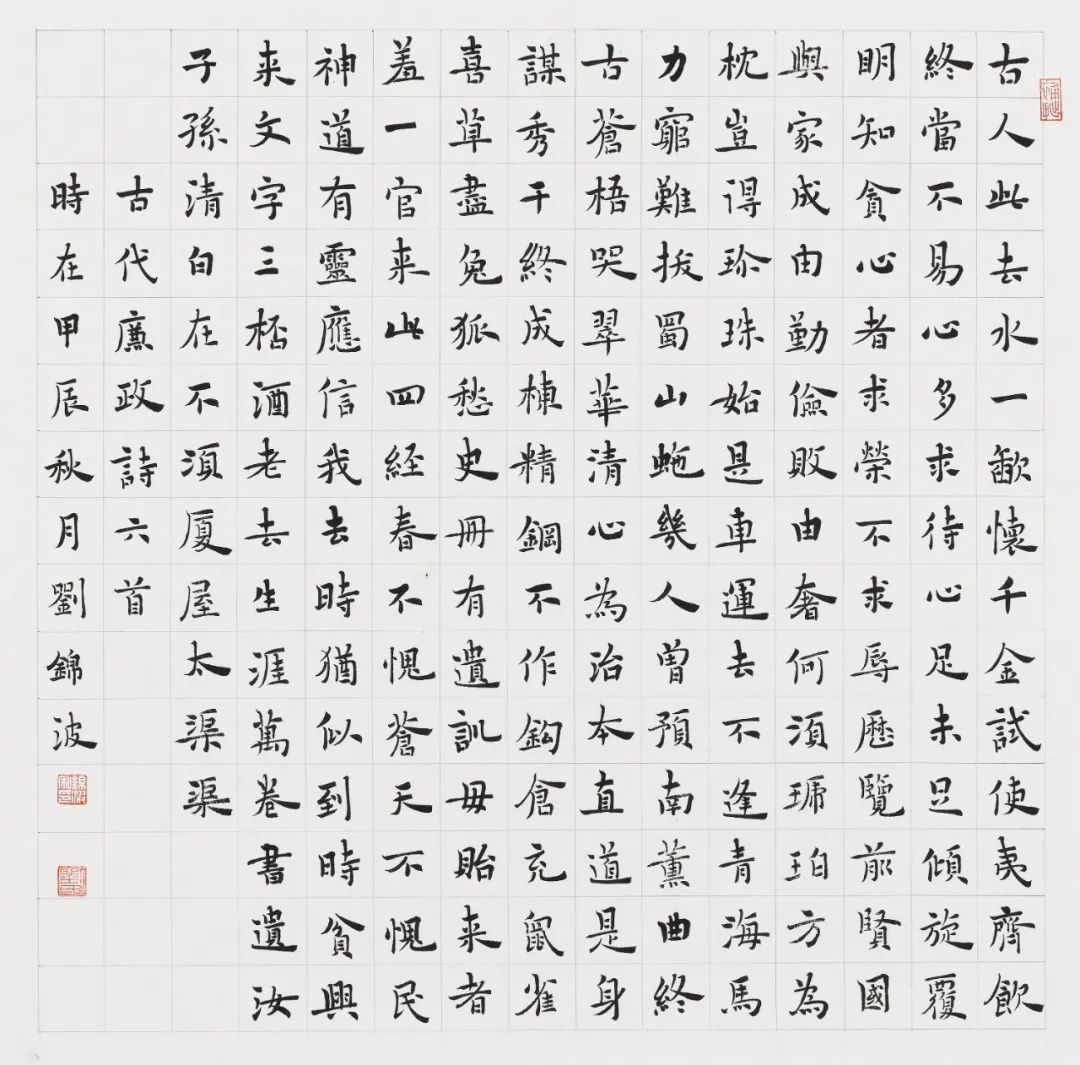 古人此去水一歃懷千金試使夷齊飲
終當不易心多求待心足未足傾旋覆
明知貪心者求榮不求辱歷覽前賢國
與家成由勤儉敗由奢何須琥珀方為
枕豈得珍珠始是車運去不逢青海馬
力窮難拔蜀山蛇幾人曾預南薰曲終
古蒼梧哭翠華清心為治本直道是身
謀秀干終成棟精鋼不作鈎倉充鼠雀
喜草盡兔狐愁史冊有遺訓毋貽来者
羞一官来此四経春不愧蒼天不愧民
神道有靈應信我去時猶似到時貧興
来文字三杯酒老去生涯萬卷書遺汝
子孫清白在不須廈屋太渠渠
古代廉政詩六首
時在甲辰秋月劉錦波